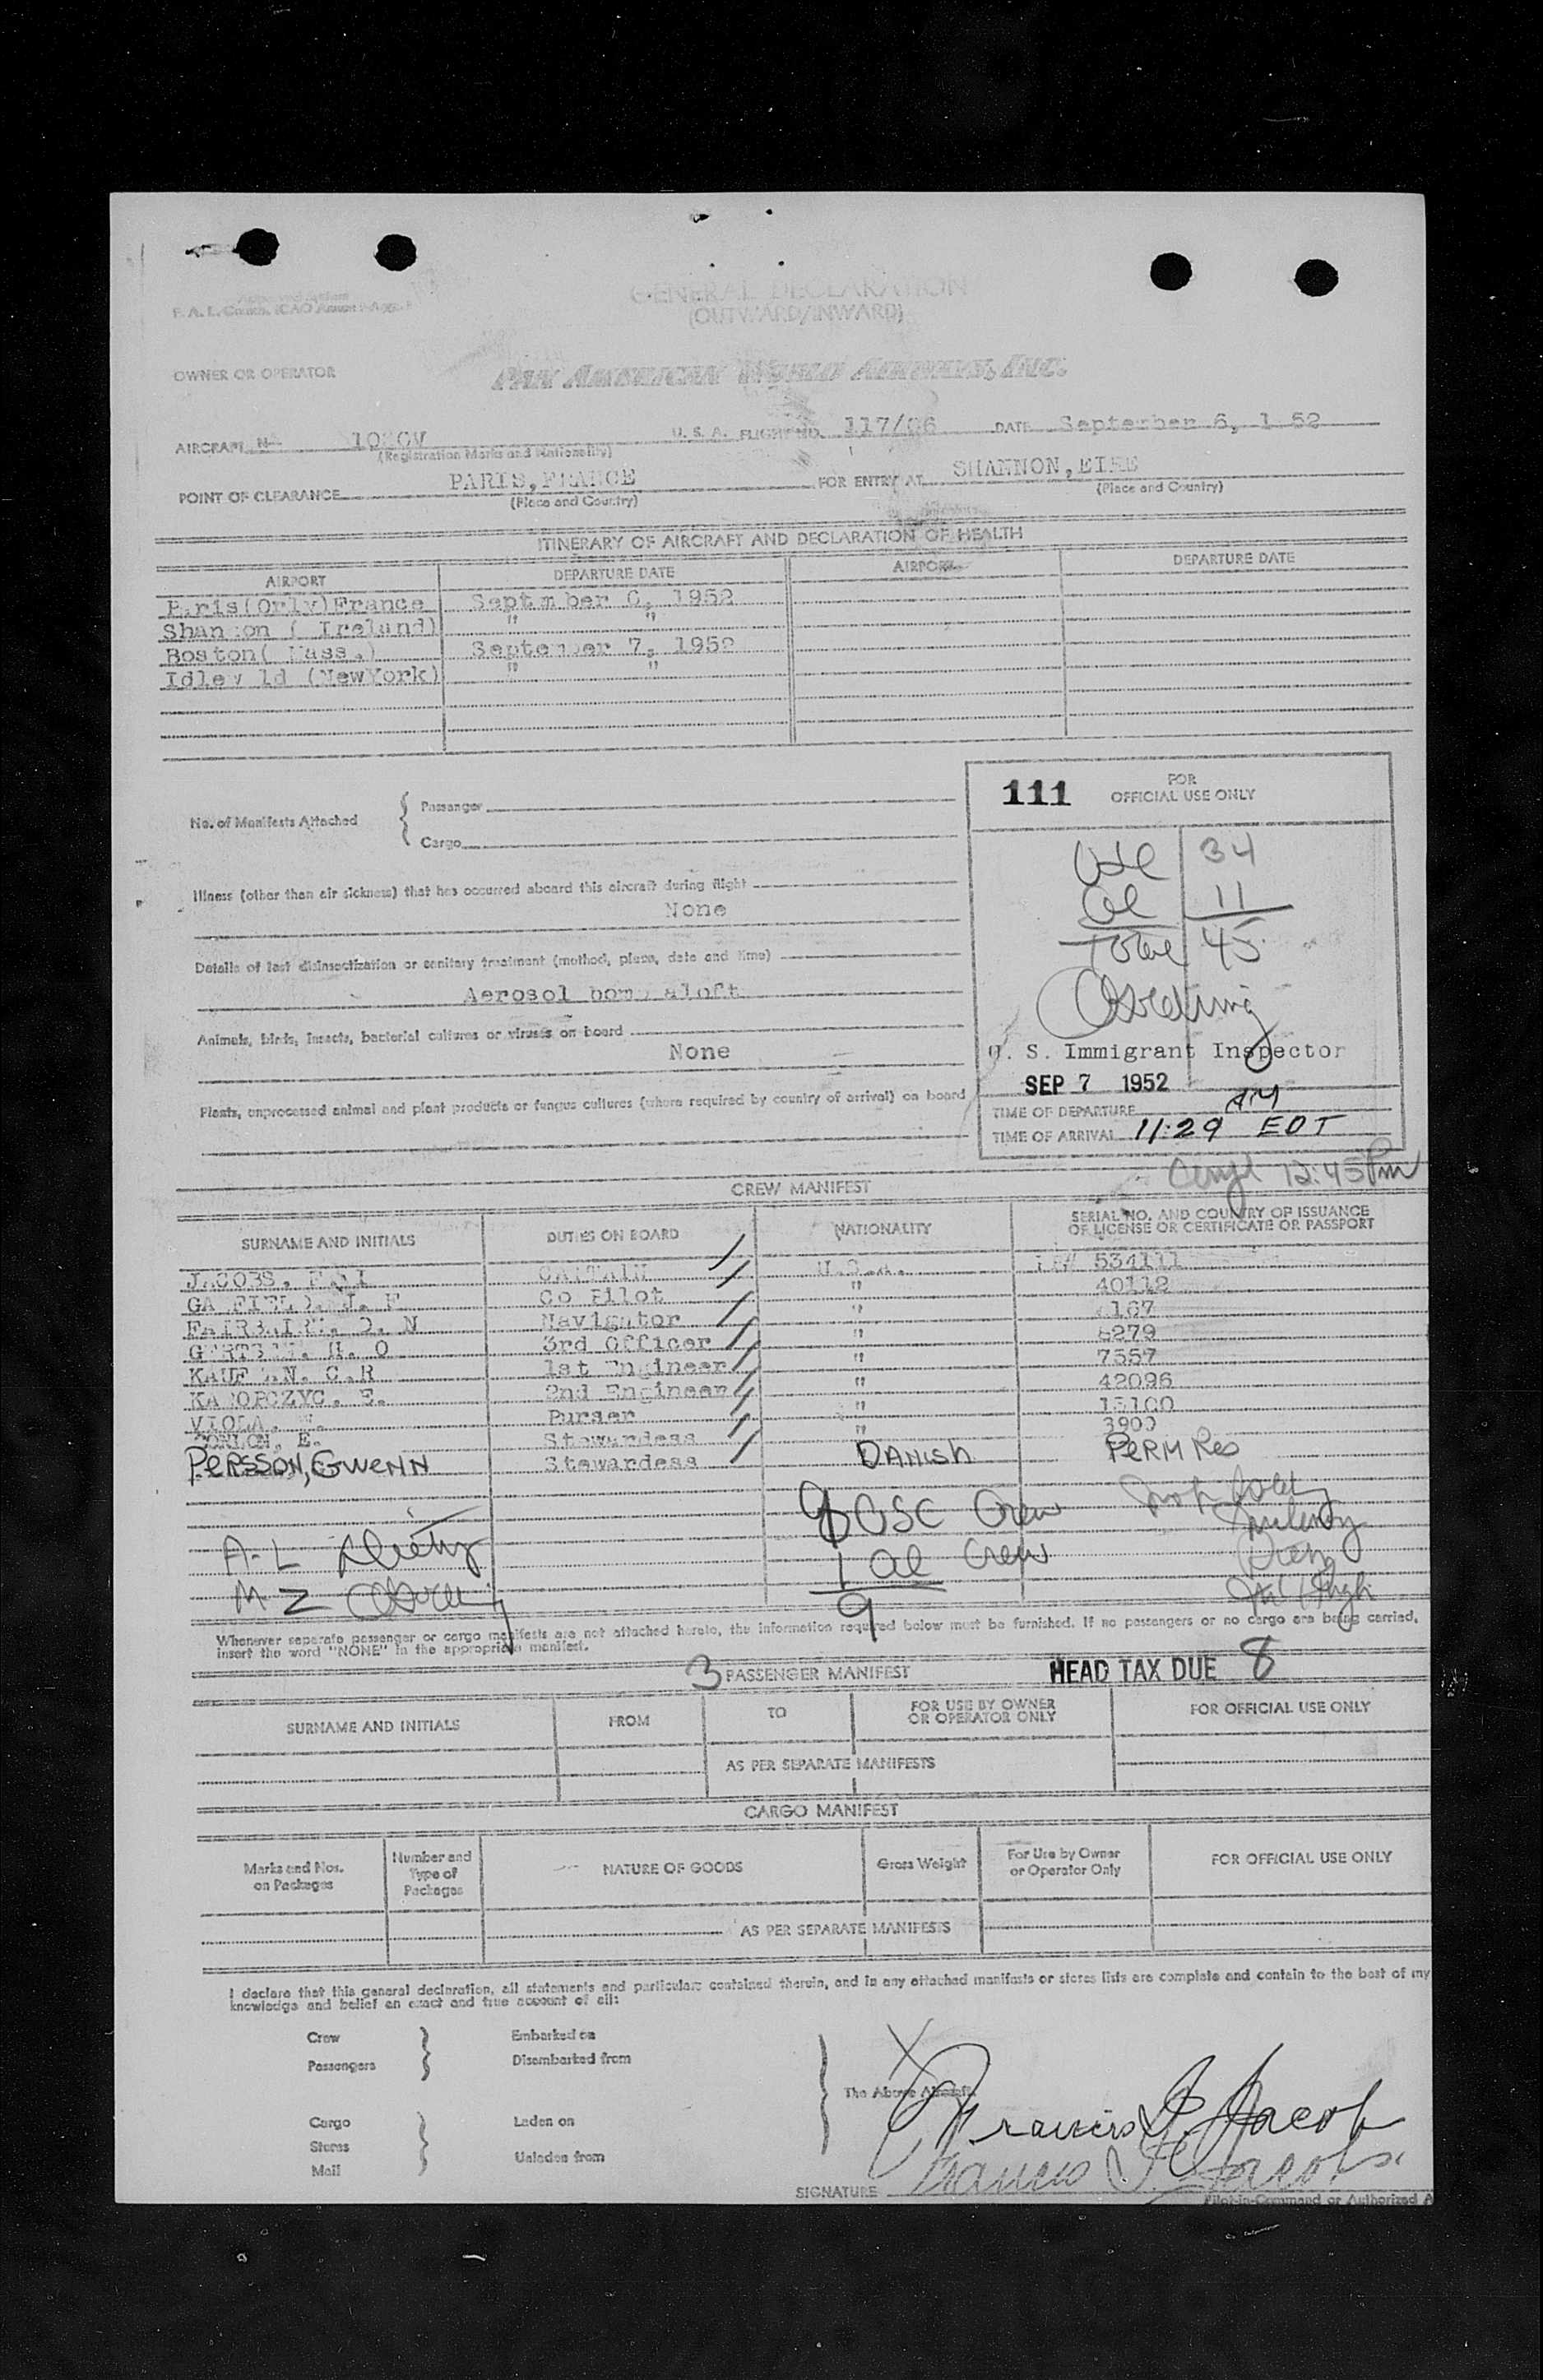 GENERAL DECLARATION
(OUTWARD/INWARD)
OWNER OR OPERATOR PAN AMERICAN WORLD AIRWAYS, INC.
AIRCRAFT N- U. S. A. FLIGHT NO. 117/06 DATE September 6, 1952
(Registration Marks and Nationality)
POINT OF CLEARANCE PARIS, FRANCE FOR ENTRY AT SHANNON, EIRE
(Place and Country) (Place and Country)
ITINERARY OF AIRCRAFT AND DECLARATION OF HEALTH
AIRPORT DEPARTURE DATE AIRPORT DEPARTURE DATE
Paris(Orly)France September 6, 1952
Shannon ( Ireland) " "
Boston( Mass.) September 7, 1952
Idlewild (NewYork) " "
111 FOR
OFFICIAL USE ONLY
No. of Manifests Attached { Passenger
Cargo
USC 34
al 11
Total 45
Illness (other than air sickness) that has occurred aboard this aircraft during flight
None
Details of last disinsectization or sanitary treatment (method, place, date and time)
Aerosol bomb aloft
Animals, birds, insects, bacterial cultures or viruses on board
None
U. S. Immigrant Inspector
SEP 7 1952
Plants, unprocessed animal and plant products or fungus cultures (where required by country of arrival) on board
TIME OF DEPARTURE AM
TIME OF ARRIVAL 11:29 EDT
12:45 Pm
CREW MANIFEST
SURNAME AND INITIALS DUTIES ON BOARD NATIONALITY SERIAL NO. AND COUNTRY OF ISSUANCE
OF LICENSE OR CERTIFICATE OR PASSPORT
JACOBS, CAPTAIN U.S.A. 534111
Co Pilot " 40112
Navigator "
3rd Officer " 6279
1st Engineer " 7557
2nd Engineer " 42096
VIOLA, Purser " 13100
CONLON, E. Stewardess " 3900
PERSSON, GWENN Stewardess DANISH PERM Res
9 USC Crew
A. L
1 al Crew
M. Z
9
Whenever separate passenger or cargo manifests are not attached hereto, the information required below must be furnished. If no passengers or no cargo are being carried,
insert the word "NONE" in the appropriate manifest.
3 PASSENGER MANIFEST HEAD TAX DUE 8
SURNAME AND INITIALS FROM TO FOR USE BY OWNER
OR OPERATOR ONLY FOR OFFICIAL USE ONLY
AS PER SEPARATE MANIFESTS
CARGO MANIFEST
Marks and Nos.
on Packages Number and
Type of
Packages NATURE OF GOODS Gross Weight For Use by Owner
or Operator Only FOR OFFICIAL USE ONLY
AS PER SEPARATE MANIFESTS
I declare that this general declaration, all statements and particulars contained therein, and in any attached manifests or stores lists are complete and contain to the best of my
knowledge and belief an exact and true account of all:
Crew Embarked on
Passengers Disembarked from
The Above Aircraft
Cargo Laden on
Stores
Mail Unladen from
Francis J. Jacobs
SIGNATURE Francis J. Jacobs
Pilot-in-Command or Authorized A